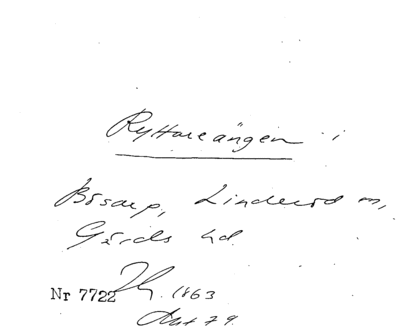 Ryttareängen i
Bosarp, Linderöd m,
Gärds hd.
Nr 7722 1863